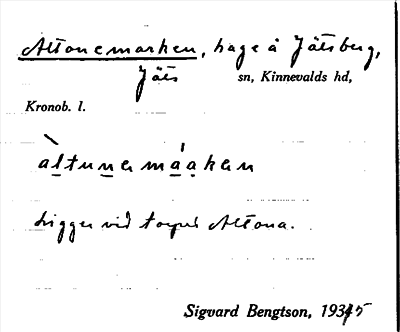 Altonemarken, hage å Jätsberg,
Jäts sn, Kinnevalds hd,
Kronob. l.
àltunamáakan
Ligger vid torpet Altona.
Sigvard Bengtson, 1935